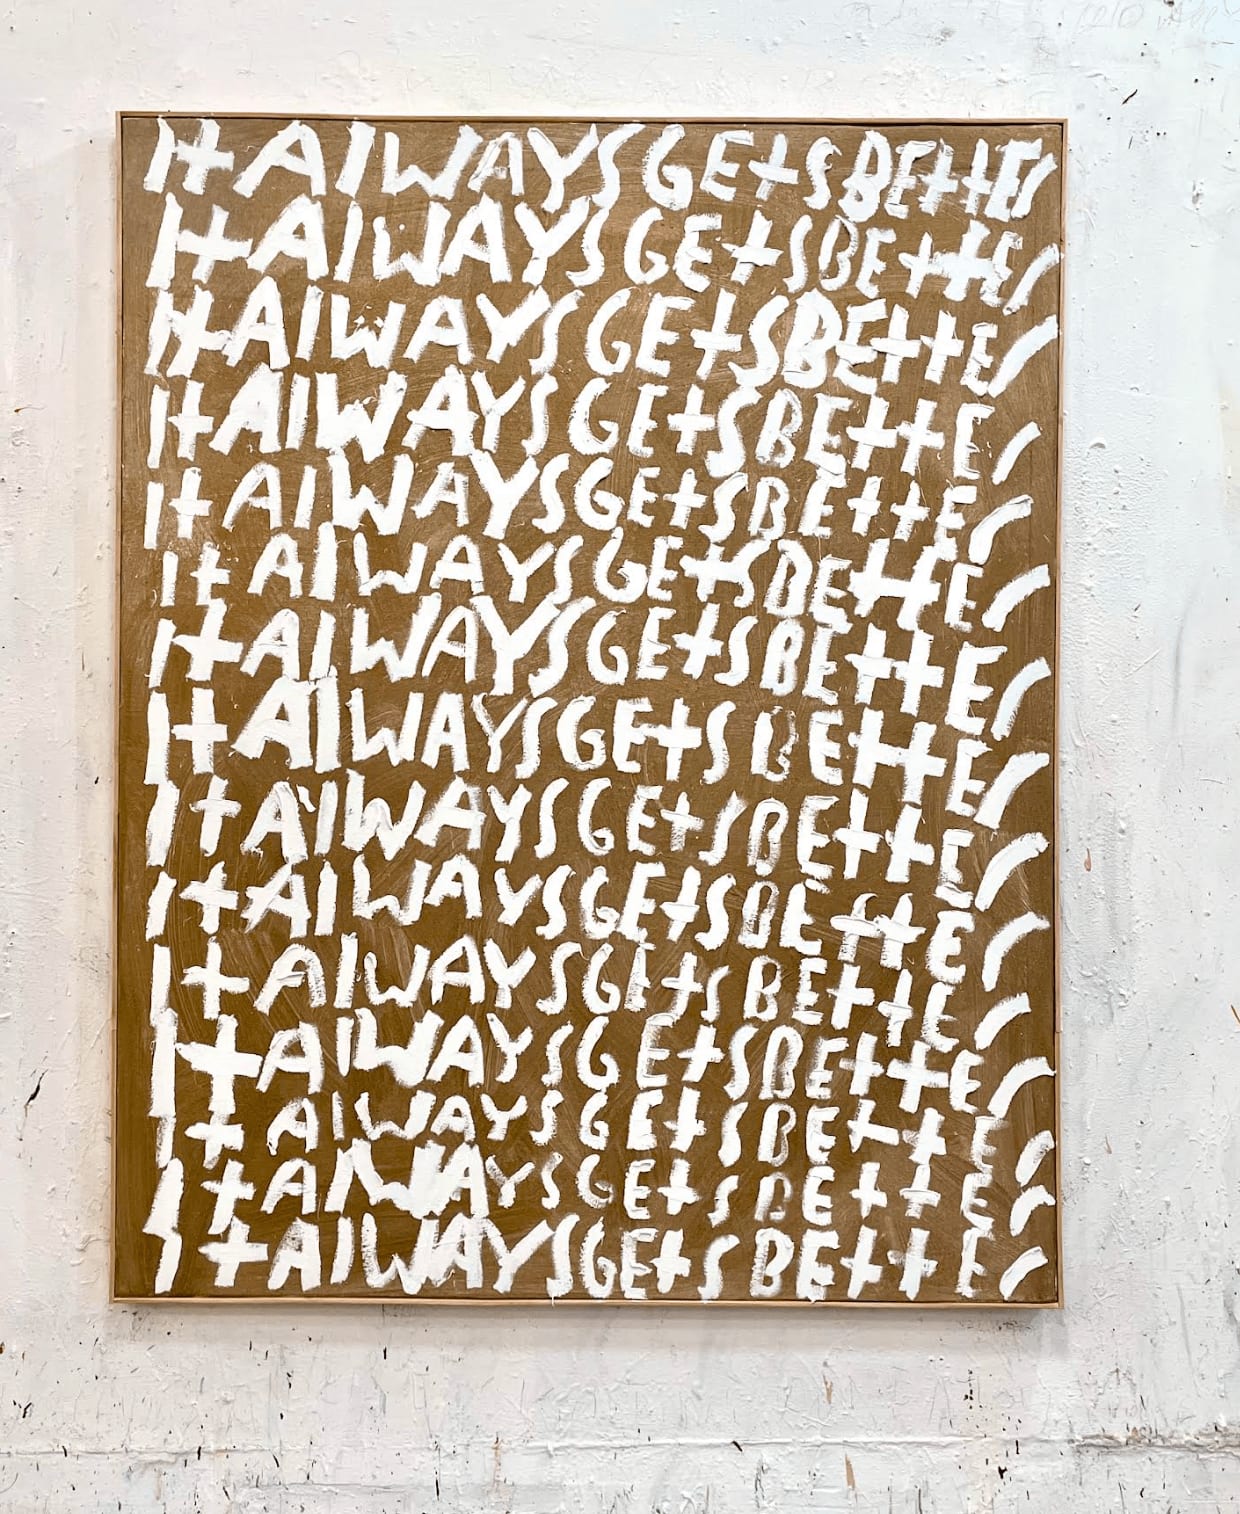 It AlWAYS GEtS BEttEr
It AlWAYS GEtS BEttEr
It AlWAYS GEtS BEttEr
It AlWAYS GEtS BEttEr
It AlWAYS GEtS BEttEr
It AlWAYS GEtS BEttEr
It AlWAYS GEtS BEttEr
It AlWAYS GEtS BEttEr
It AlWAYS GEtS BEttEr
It AlWAYS GEtS BEttEr
It AlWAYS GEtS BEttEr
It AlWAYS GEtS BEttEr
It AlWAYS GEtS BEttEr
It AlWAYS GEtS BEttEr
It AlWAYS GEtS BEttEr